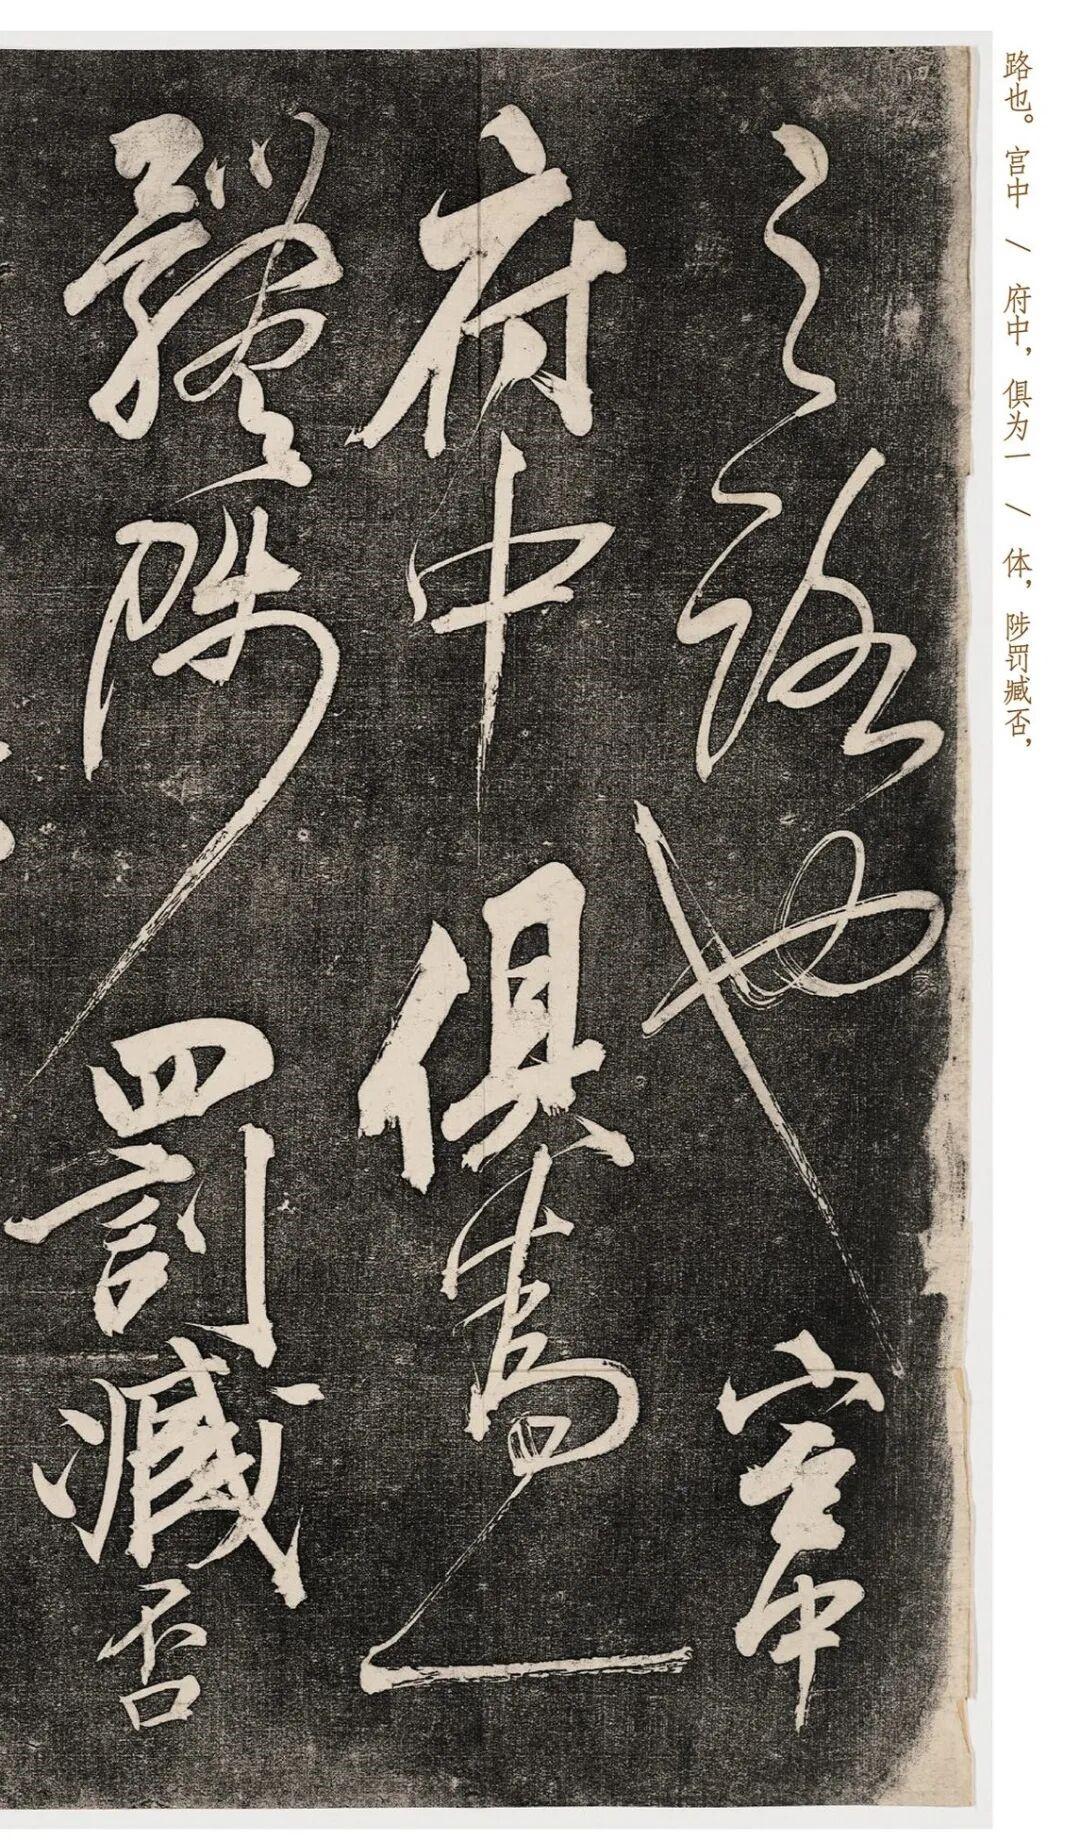 路也。宫中 / 府中，俱为一 / 体，陟罚臧否，
之路也宫中
府中俱為一
體陟罰臧否